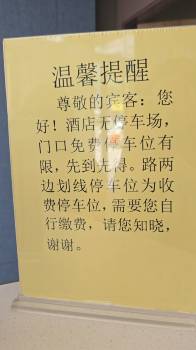 温馨提醒
尊敬的宾客：您
好！酒店无停车场，
门口免费停车位有
限，先到先得。路两
边划线停车位为收
费停车位，需要您自
行缴费，请您知晓，
谢谢。